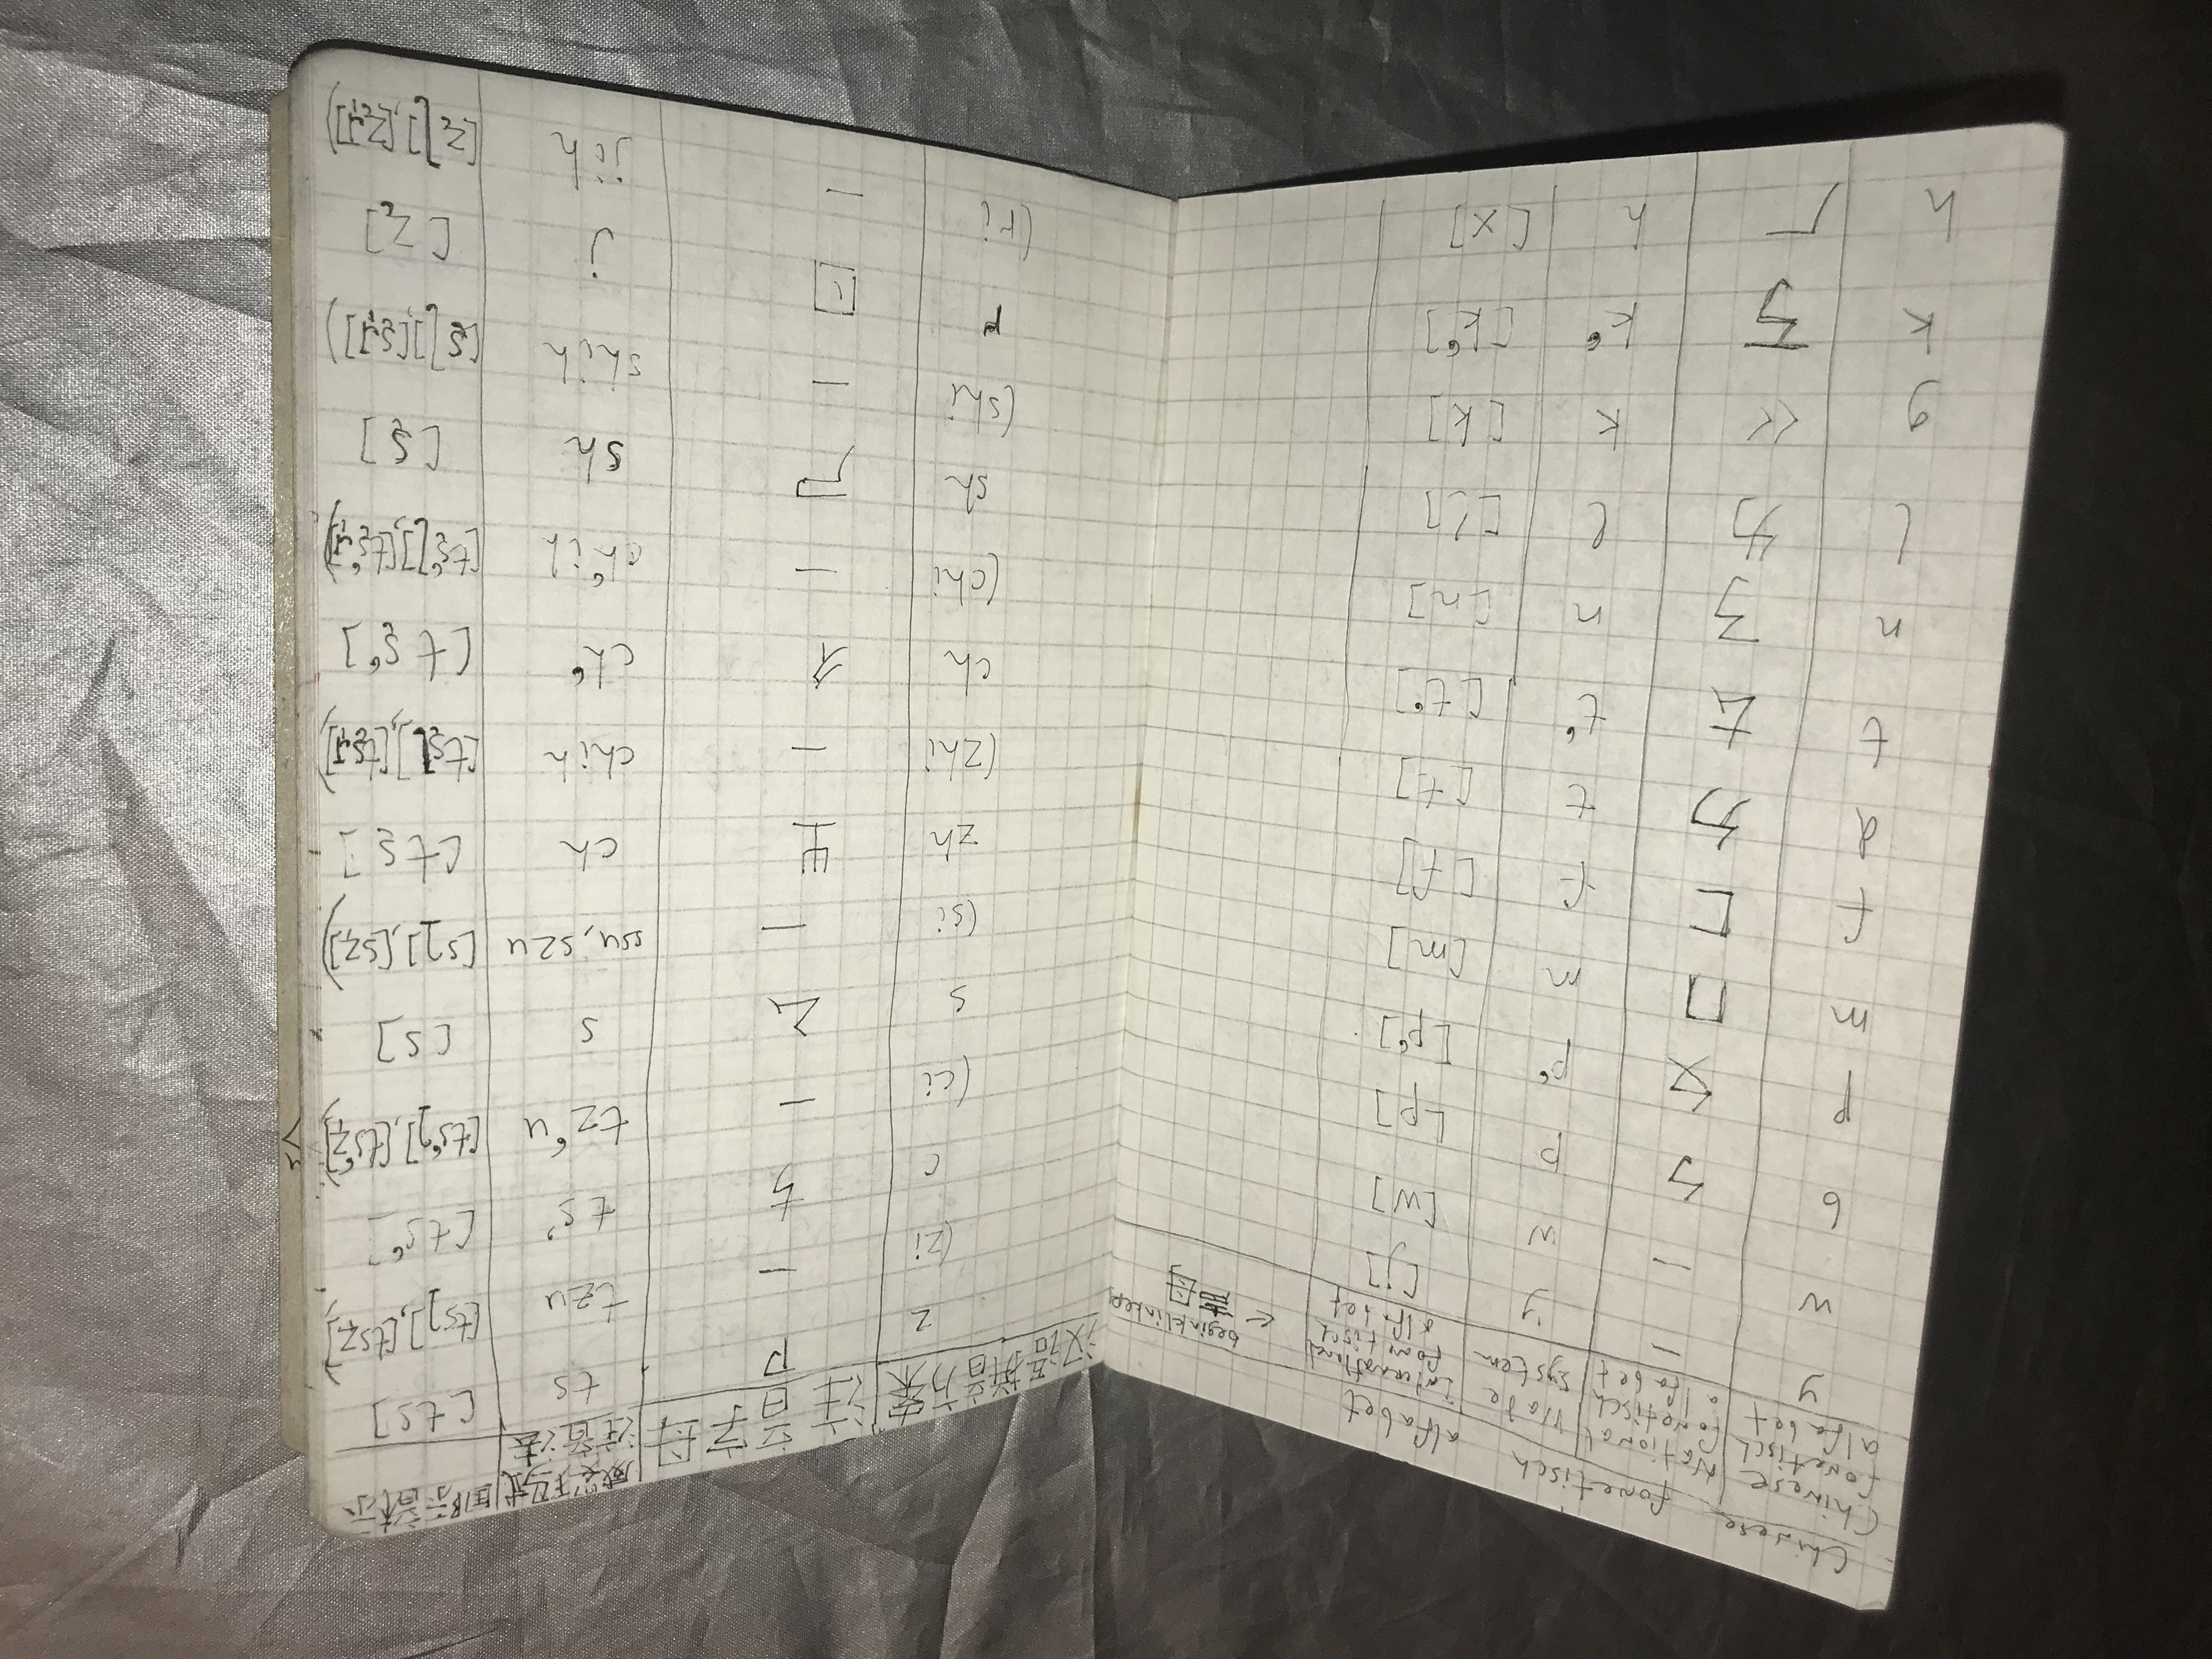 Chinese fonetisch alfabet
Chinese fonetisch alfabet | National fonetisch alfabet | Wade system | International fonetisch alfabet | ← beginklinken 声母
y — y [j]
w — w [w]
b ㄅ p [p]
p ㄆ p‘ [p‘]
m ㄇ m [m]
f ㄈ f [f]
d ㄉ t [t]
t ㄊ t‘ [t‘]
n ㄋ n [n]
l ㄌ l [l]
g ㄍ k [k]
k ㄎ k‘ [k‘]
h ㄏ h [x]
汉语拼音方案 | 注音字母 | 威妥玛式注音法 | 国际音标
z ㄗ ts [ts]
(zi — tzu [tsɿ],[tsz̩])
c ㄘ ts’ [ts‘]
(ci — tz‘u [ts‘ɿ],[ts‘z̩])
s ㄙ s [s]
(si — ssu, szu [sɿ],[sz̩])
zh ㄓ ch [tʂ]
(zhi — chih [tʂʅ],[tʂɻ̩])
ch ㄔ ch‘ [tʂ‘]
(chi — ch‘ih [tʂ‘ʅ],[tʂ‘ɻ̩])
sh ㄕ sh [ʂ]
(shi — shih [ʂʅ],[ʂɻ̩])
r ㄖ j [ʐ]
(ri — jih [ʐʅ],[ʐɻ̩])